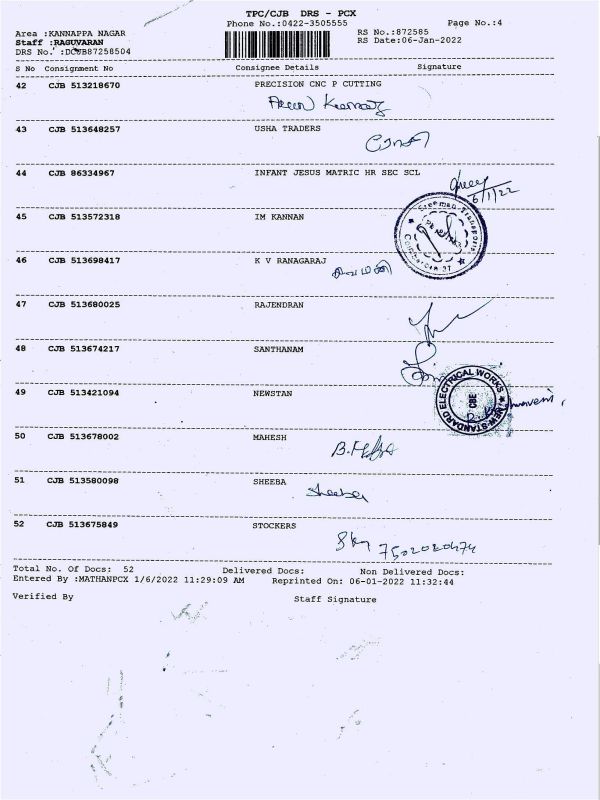 TPC/CJB DRS - PCX
Phone No.:0422-3505555
Page No.:4
Area :KANNAPPA NAGAR
RS No.:872585
Staff :RAGUVARAN
RS Date:06-Jan-2022
DRS No. :DCJB87258504
S No Consignment No Consignee Details Signature
42 CJB 513218670 PRECISION CNC P CUTTING
43 CJB 513648257 USHA TRADERS
44 CJB 86334967 INFANT JESUS MATRIC HR SEC SCL
6/1/22
45 CJB 513572318 IM KANNAN
46 CJB 513698417 K V RANAGARAJ
47 CJB 513680025 RAJENDRAN
48 CJB 513674217 SANTHANAM
49 CJB 513421094 NEWSTAN
NEW-STANDARD ELECTRICAL WORKS
CBE
50 CJB 513678002 MAHESH
51 CJB 513580098 SHEEBA
Sheeba
52 CJB 513675849 STOCKERS
Total No. Of Docs: 52 Delivered Docs: Non Delivered Docs:
Entered By :MATHANPCX 1/6/2022 11:29:09 AM Reprinted On: 06-01-2022 11:32:44
Verified By Staff Signature